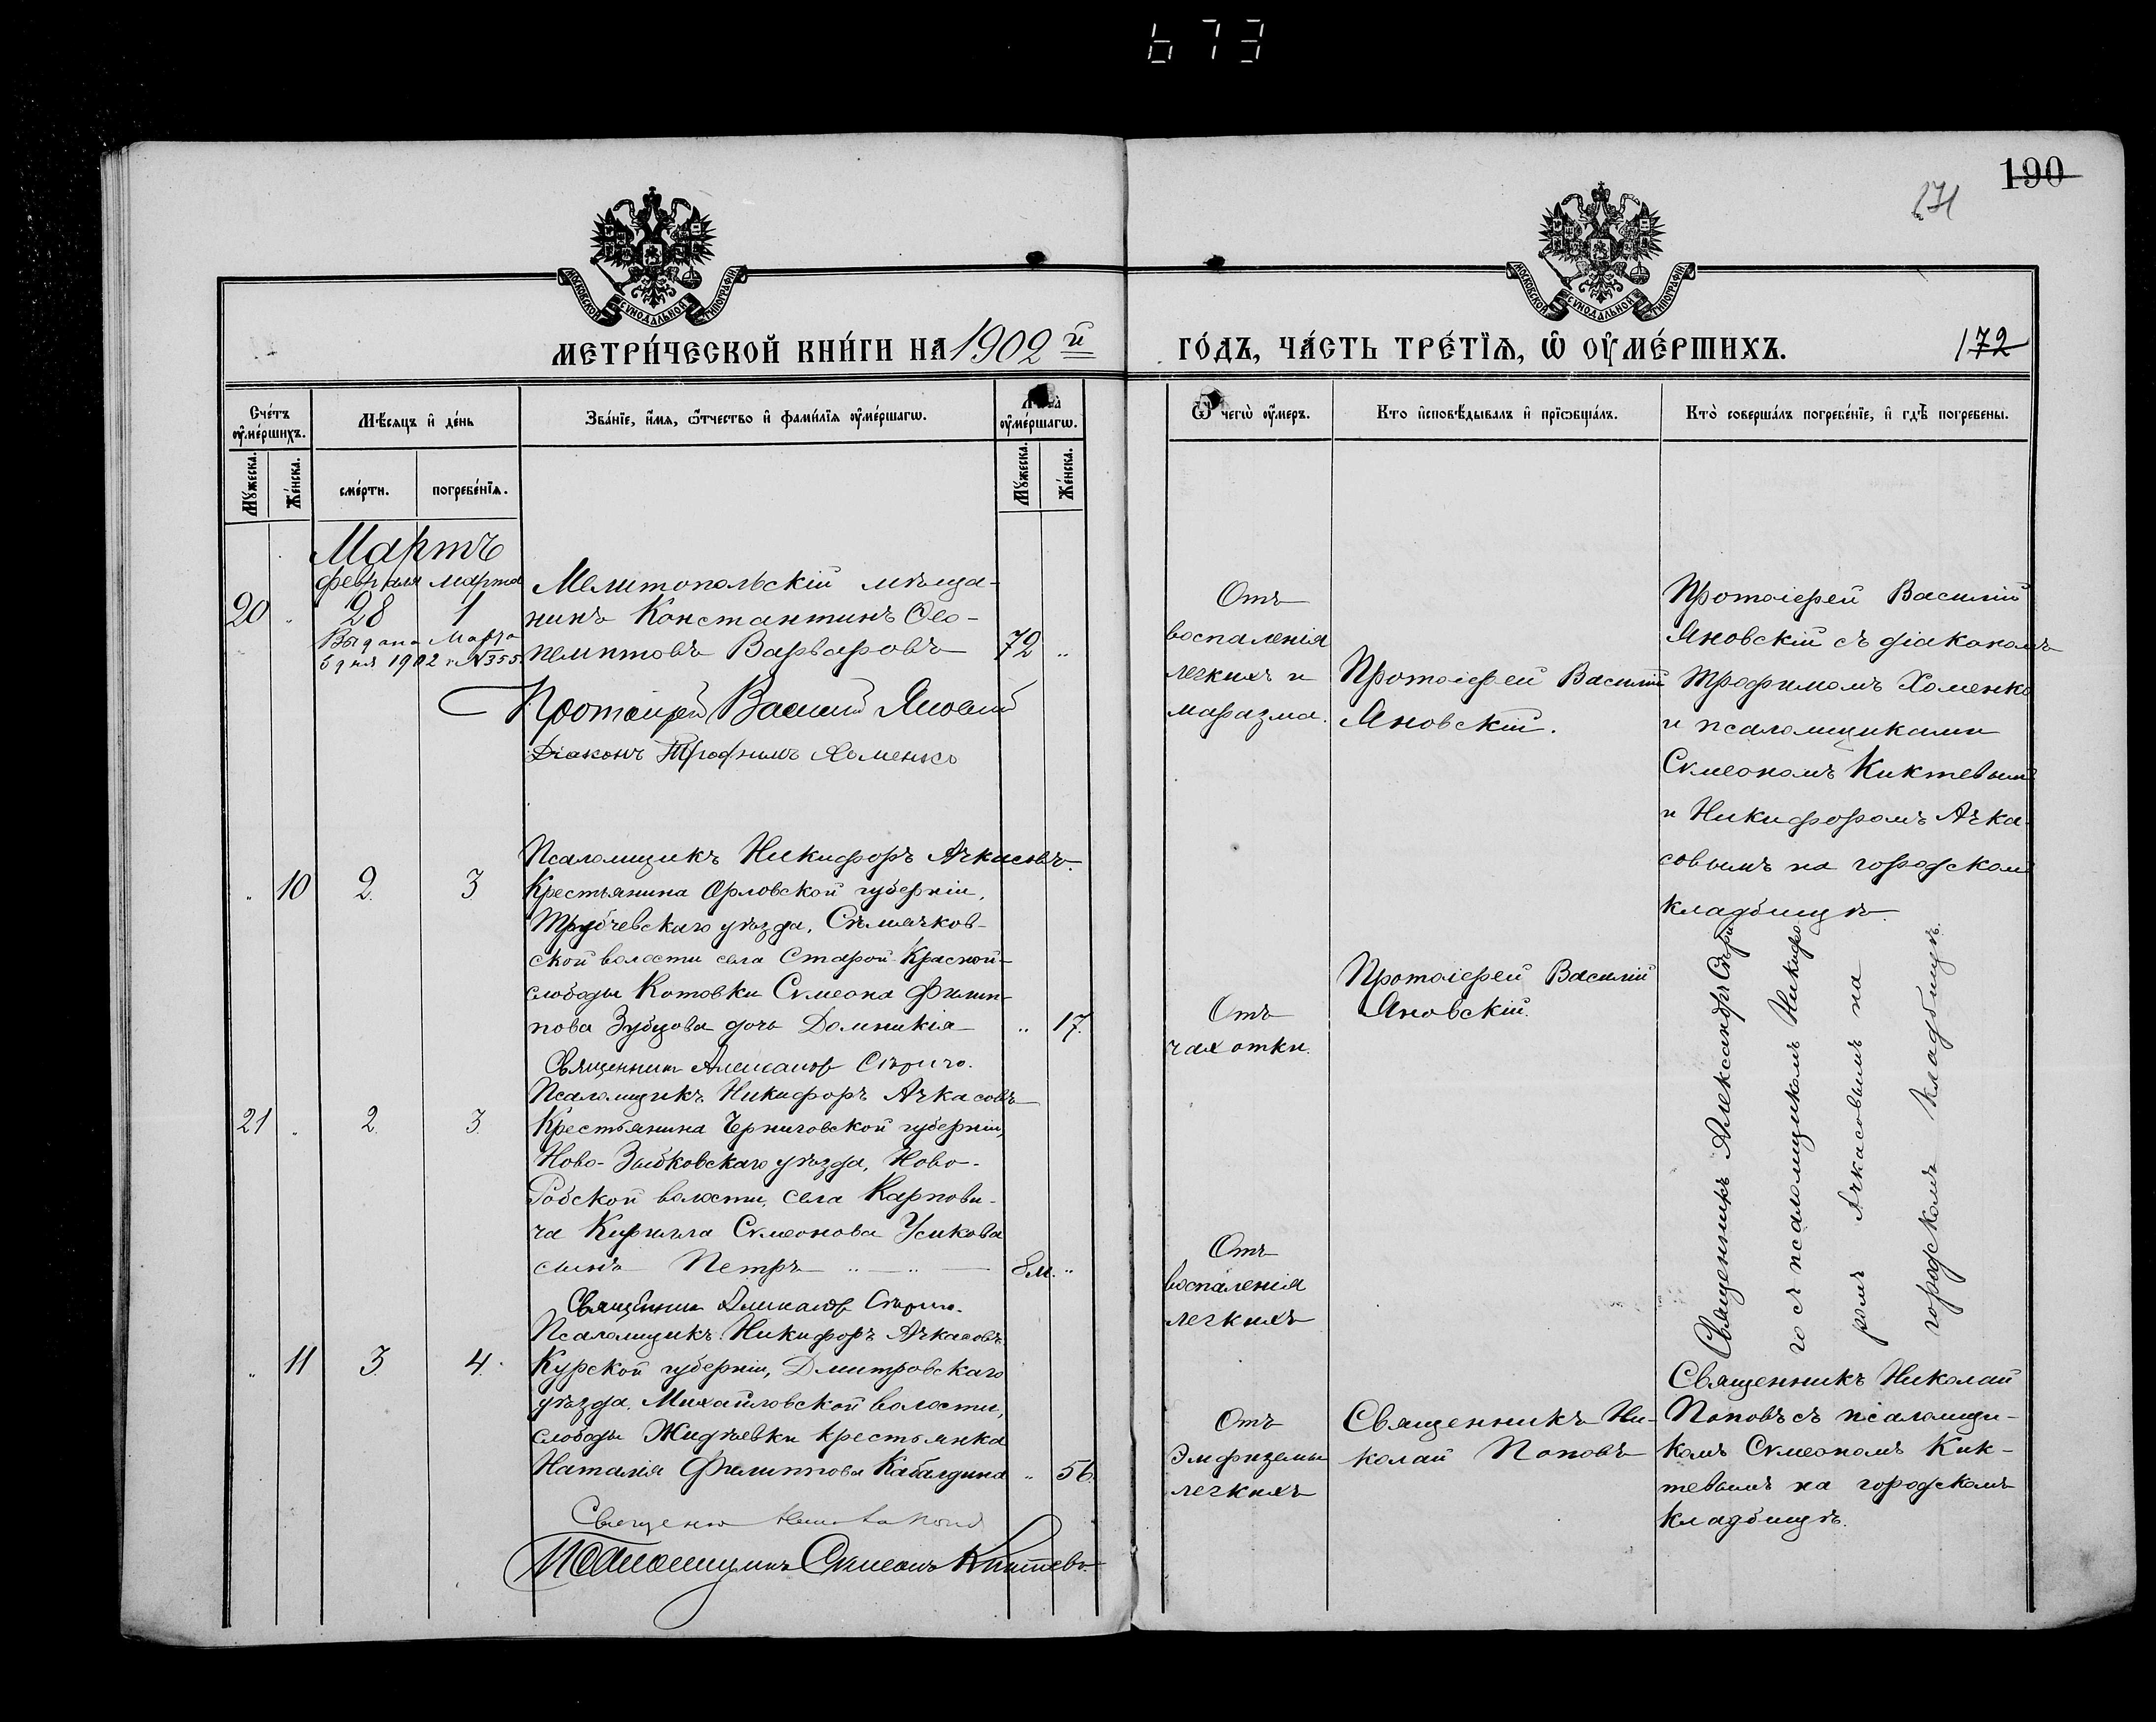 673
190
171
172
МОСКОВСКОЙ СѴНОДАЛЬНОЙ ТИПОГРАФІИ
МОСКОВСКОЙ СѴНОДАЛЬНОЙ ТИПОГРАФІИ
МЕТРИ́ЧЕСКОЙ КНИ́ГИ НА 1902 й
ГО́ДЪ, ЧА́СТЬ ТРЕ́ТЇѦ, Ѡ ОУ҆МЕ́РШИХЪ.
Сче́тъ оу҆ме́ршихъ.
Мꙋ́жеска.
Же́нска.
Мѣ́сѧцъ и҆ де́нь
сме́рти.
погребе́нїѧ.
Зва́нїе, и҆́мѧ, ѻ҆́тчество и҆ фами́лїѧ оу҆ме́ршагѡ.
оу҆ме́ршагѡ.
Мꙋ́жеска.
Же́нска.
Ѿ чегѡ̀ оу҆́меръ.
Кто̀ и҆сповѣ́дывалъ и҆ прїѡбща́лъ.
Кто̀ соверша́лъ погребе́нїе, и҆ гдѣ̀ погребены̀.
Мартъ
февраля марта
20 „ 28 1
Выдана Марта
5 дня 1902 г. №355.
Мелитопольскій мѣща-
нинъ Константинъ Ѳео-
пемптовъ Варваровъ 72 „
Протоіерей Василій Яновскій
Діаконъ Трофимъ Хоменко
Отъ
воспаленія
легкихъ и
маразма.
Протоіерей Василій
Яновскій.
Протоіерей Василій
Яновскій съ діакономъ
Трофимомъ Хоменко
и псаломщиками
Сѵмеономъ Киктевымъ
и Никифоромъ Ачка-
совымъ на городском
кладбищѣ.
Псаломщикъ Никифоръ Ачкасовъ.
„ 10 2. 3
Крестьянина Орловской губерніи,
Трубчевскаго уѣзда, Сѣмячков-
ской волости села Старой-Красной-
слободы Котовки Сѵмеона Филип-
пова Зубцова дочь Домникія „ 17.
Священникъ Александр Сѣрич.
Отъ
чахотки.
Протоіерей Василій
Яновскій.
Священникъ Александръ Сѣри
го съ псаломщикомъ Никифо
ромъ Ачкасовымъ на
городскомъ кладбищѣ.
Псаломщикъ Никифоръ Ачкасовъ
21 „ 2. 3.
Крестьянина Черниговской губерніи,
Ново-Зыбковскаго уѣзда, Ново-
Робской волости, села Карпови-
ча Кирилла Сѵмеонова Усикова
сынъ Петръ 8м. „
Псаломщикъ Никифоръ Ачкасовъ
Отъ
воспаленія
легкихъ
„ 11 3. 4.
Курской губерніи, Дмитровскаго
уѣзда, Михайловской волости,
слободы Жидѣевки крестьянка
Наталія Филиппова Кабалдина „ 56.
Псаломщикъ Сѵмеонъ Киктевъ
Отъ
Эмфиземы
легкихъ
Священникъ Ни-
колай Поповъ
Священникъ Николай
Поповъ съ псаломщи-
комъ Сѵмеономъ Кик-
тевымъ на городскомъ
кладбищѣ.